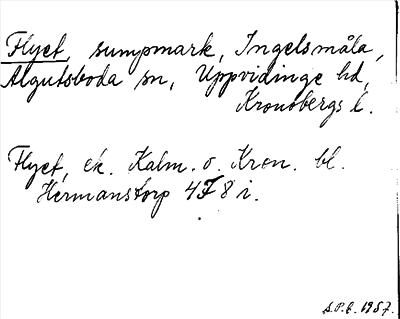 Flyet, sumpmark, Ingelsmåla,
Algutsboda sn, Uppvidinge hd,
Kronobergs l.
Flyet, ek. Kalm. o. Kron. bl.
Hermanstorp 4F8i.
S.P.E. 1957.